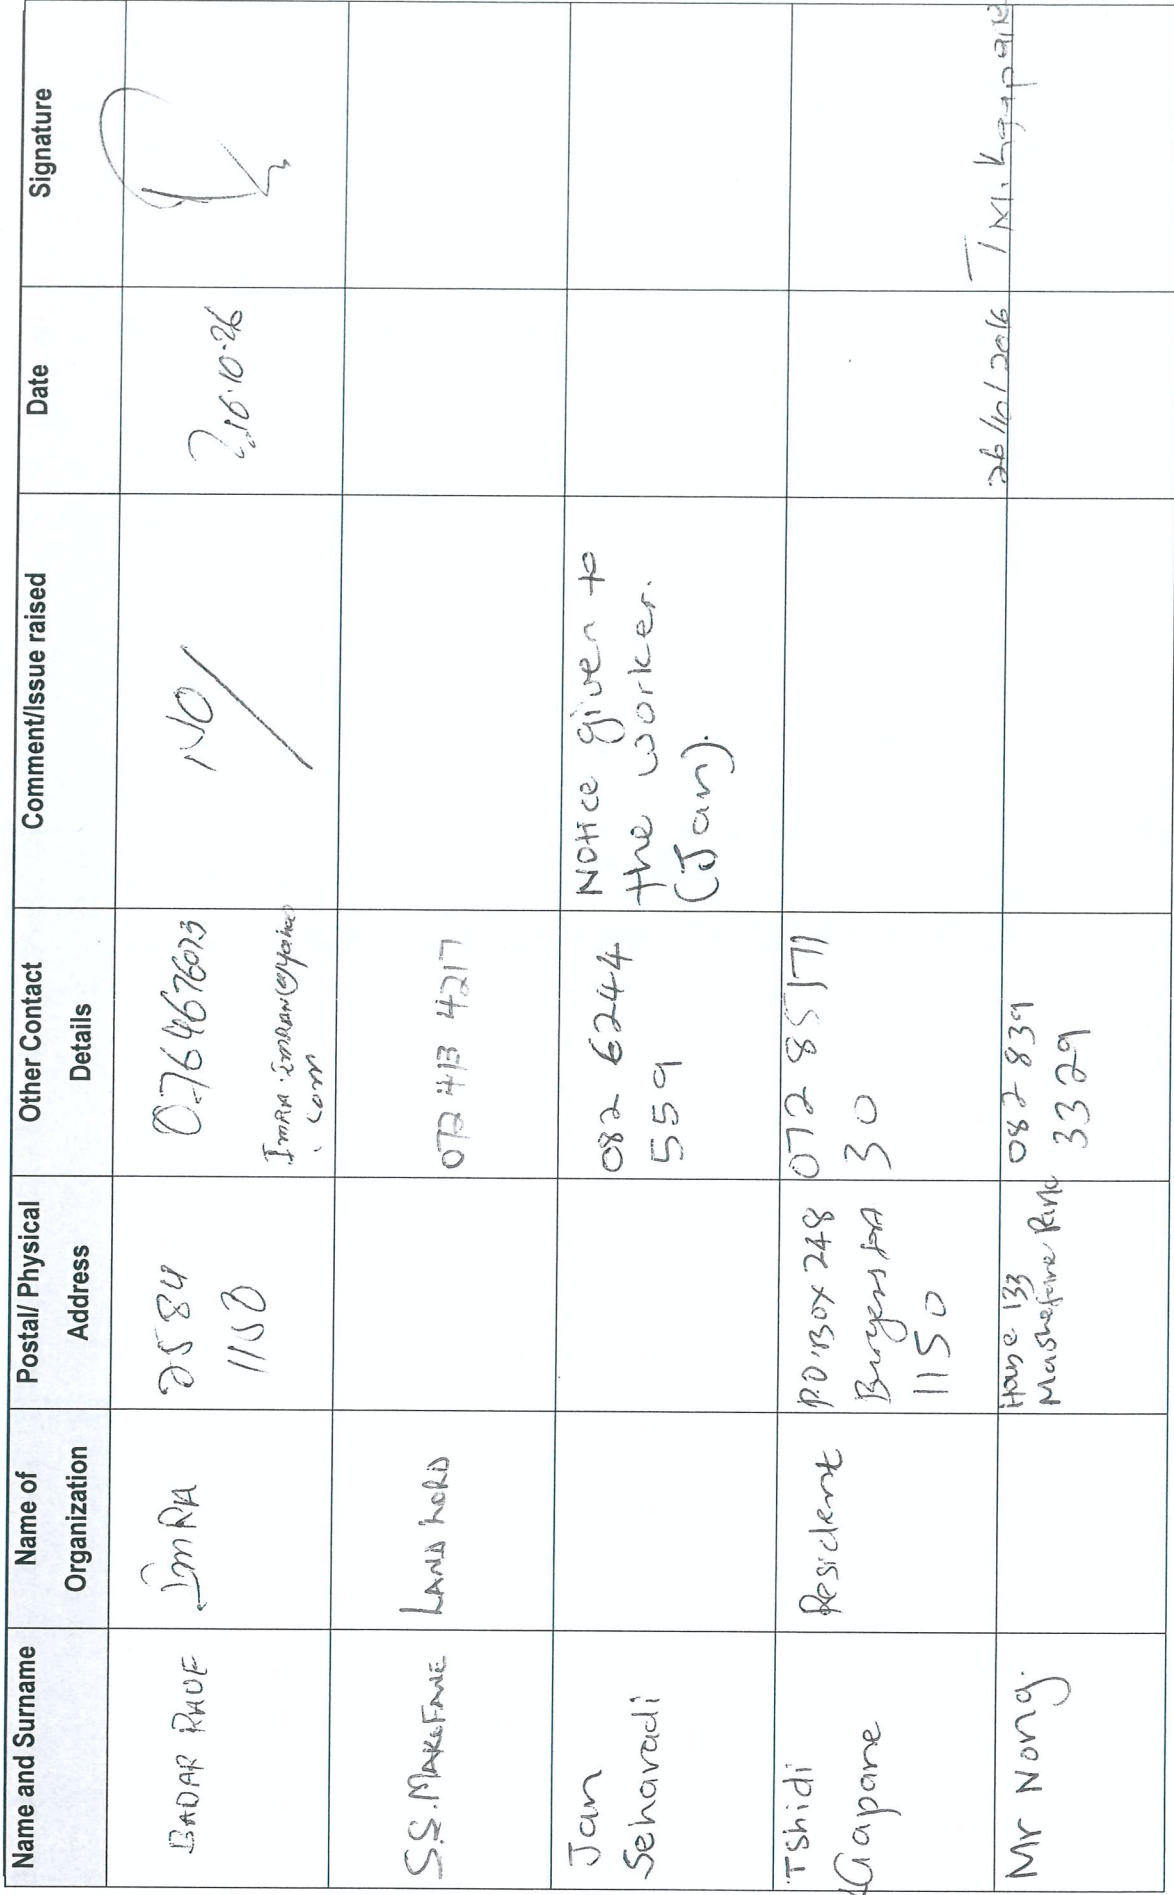 Name and Surname
Name of
Organization
Postal/ Physical
Address
Other Contact
Details
Comment/Issue raised
Date
Signature
BADAR RAUF
ImRA
2584
1150
0764676073
.com
NO
S.S. MAKEFANE
LAND LORD
072 413 4217
Jan
Seharadi
082 6244
559
Notice given to
the worker.
(Jan).
Tshidi
Gapane
Resident
P.O.Box 248
Burgersfort
1150
072 85171
30
26/10/2016
T.M. Kgapane
Mr Nong.
House 133
Mashefane Park
082 839
3329